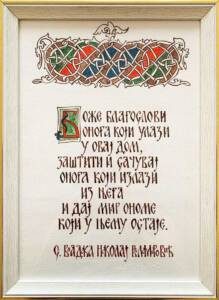 Боже благослови
онога који улази
у овај дом,
заштити и сачувај
онога који излази
из њега
и дај мир ономе
који у њему остаје.
Николај